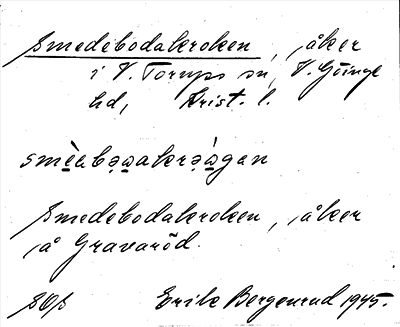 Smedebodakroken, åker
i V. Torups sn, V. Göinge
hd, Krist. l.
smèabǝakrǝ̀gan
Smedebodakroken, åker
å Gravaröd.
SOs Erik Bergenrud 1945.